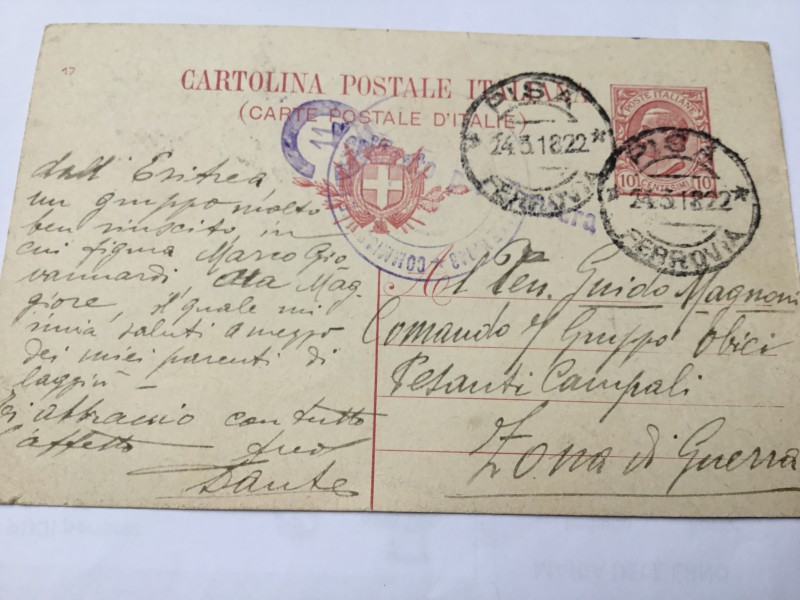 17
CARTOLINA POSTALE ITALIANA
(CARTE POSTALE D'ITALIE)
POSTE ITALIANE
10 CENTESIMI 10
PISA
24.3.18.22
FERROVIA
PISA
24.3.18.22
FERROVIA
11
dall' Eritrea
un gruppo molto
ben riuscito in
cui figura Marco Gio
vannardi, Mag
giore, il quale mi
invia saluti a mezzo
dei miei parenti di
laggiù -
abbraccio con tutto
affetto tuo
Dante
Al Ten. Guido Magnani
Comando Gruppo Obici
Pesanti Campali
Zona di Guerra